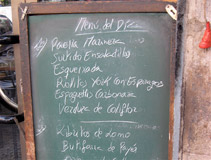 Menú del Día
1º) Paella Marinera
Surtido Ensaladilla
Esqueixada
Rollito York con Esparragos
Espaguetti Carbonara
Verdura de Coliflor
2º)
de Lomo
Butifarra de Payés